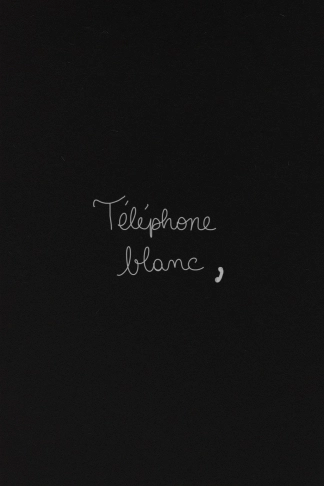 Téléphone
blanc,